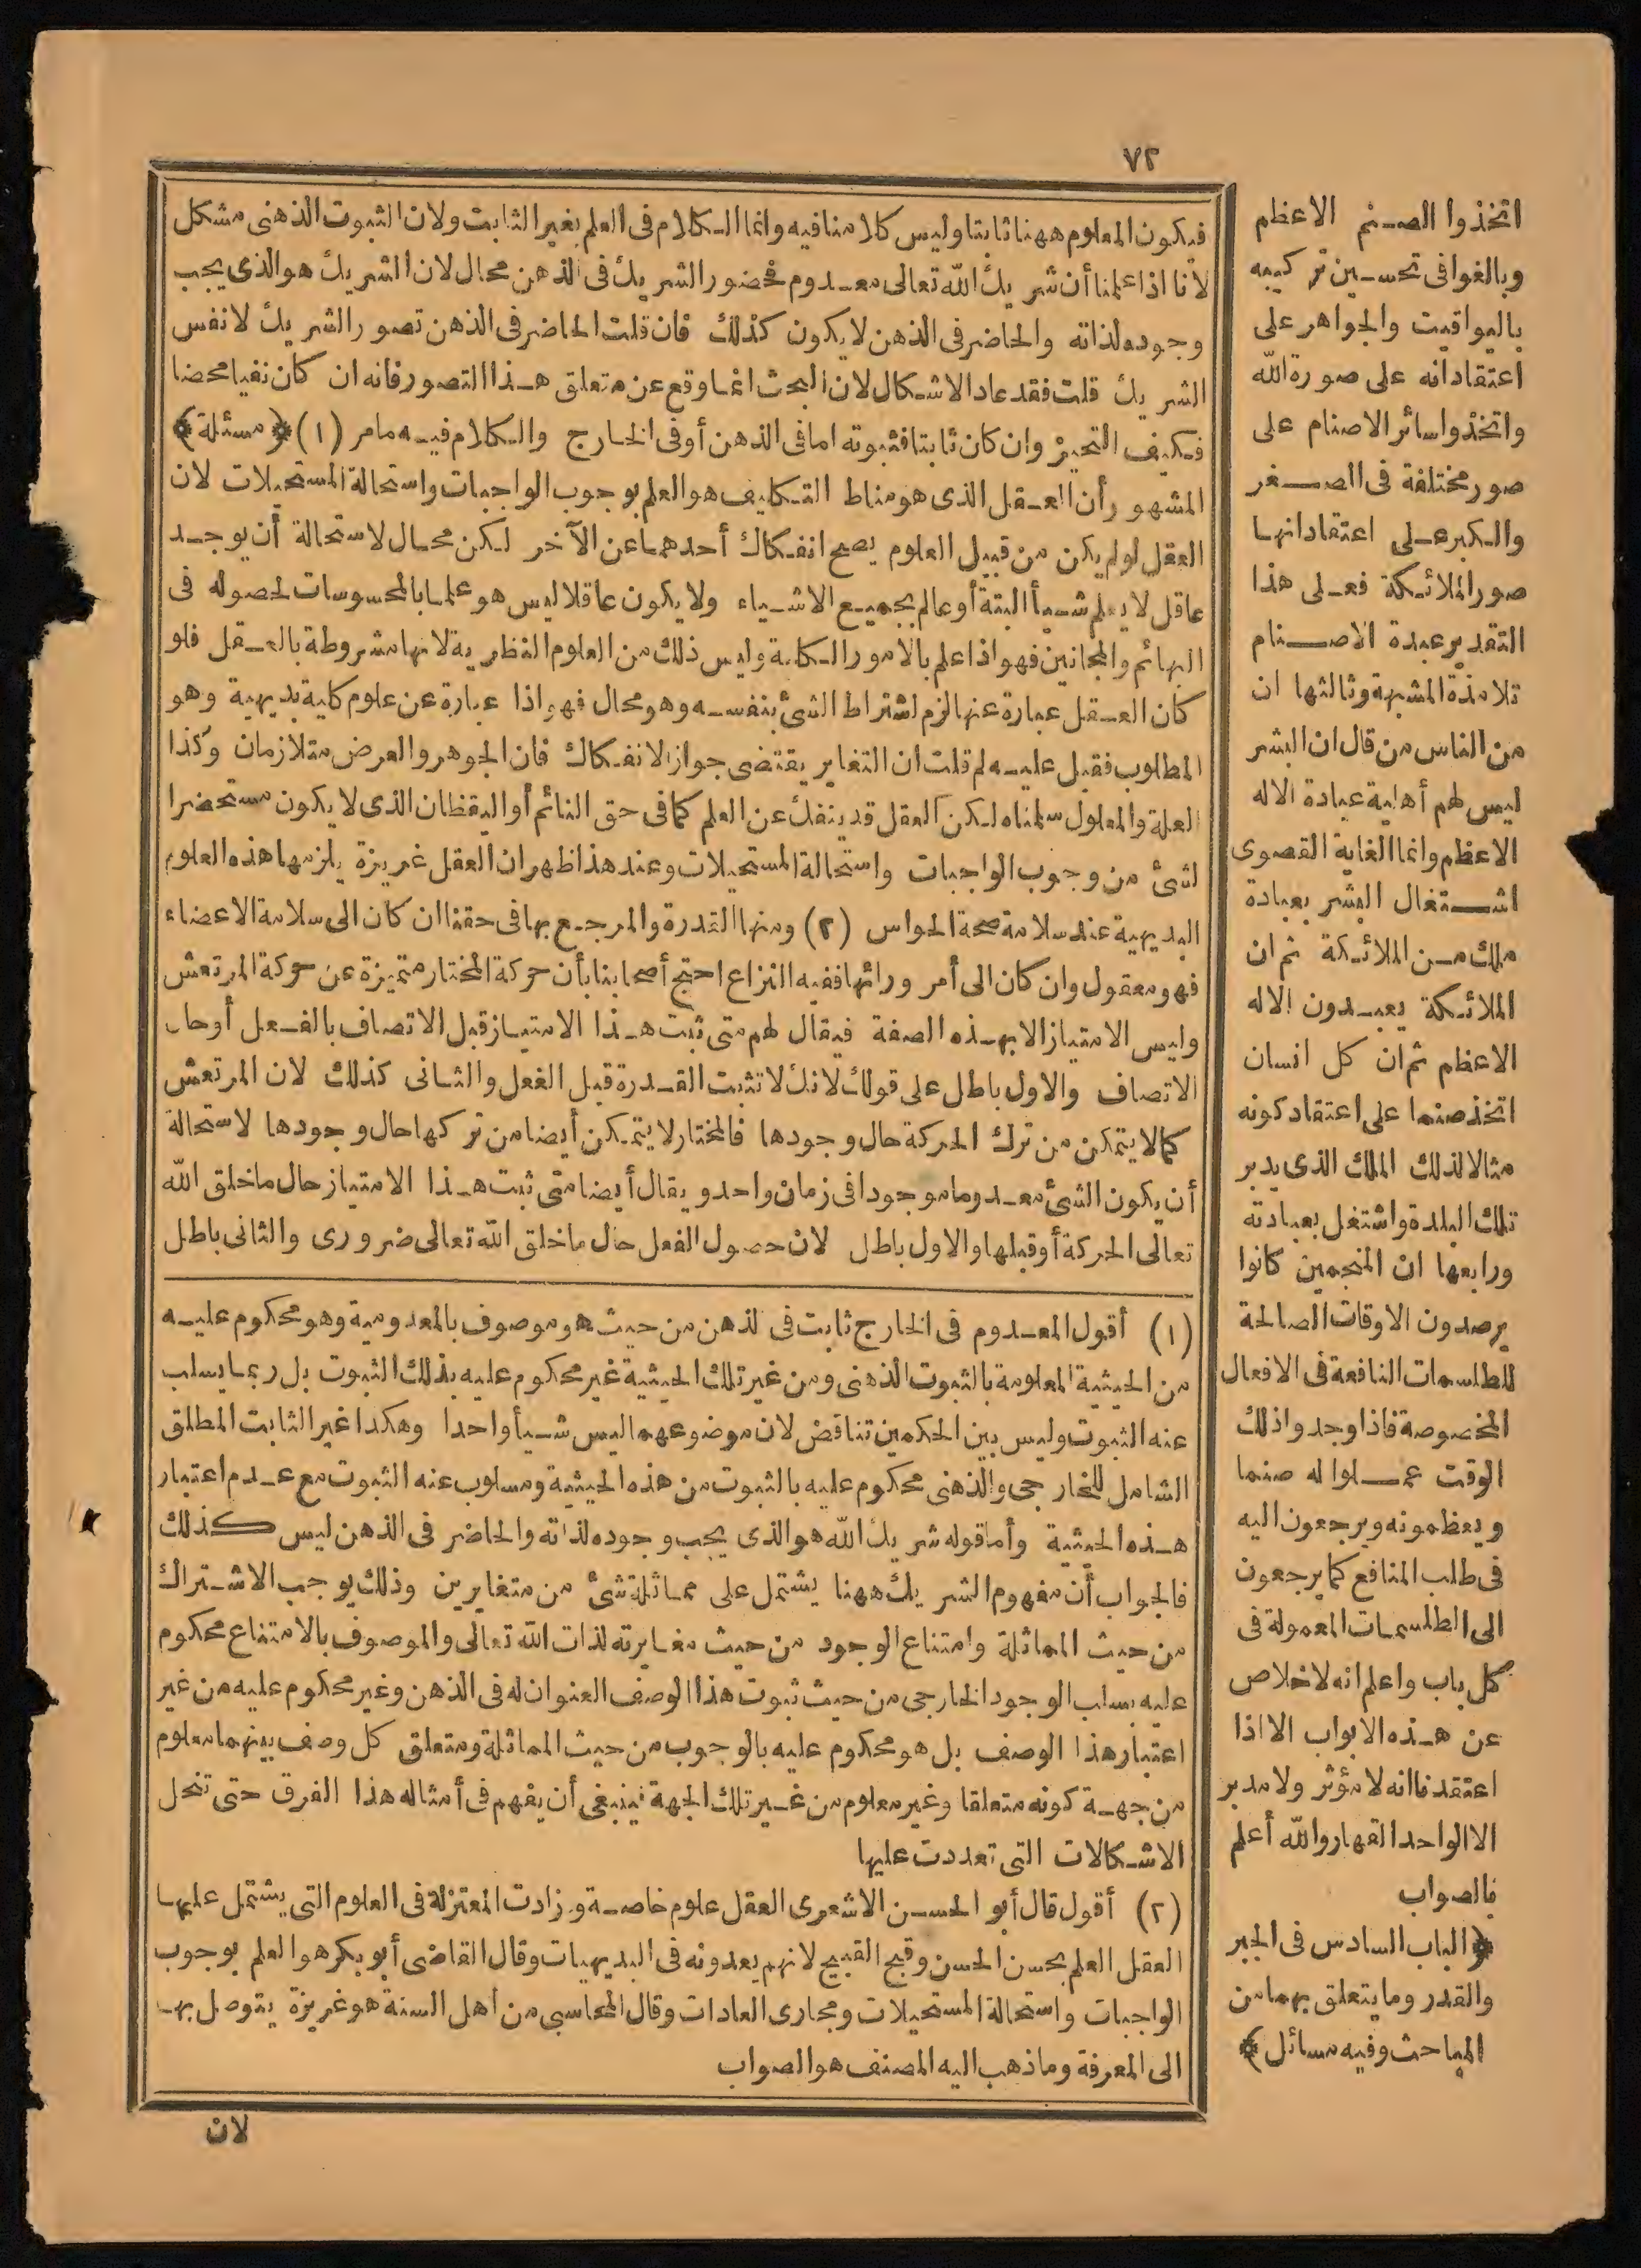 ٧٢
فيكون المعلوم ههنا ثابتا وليس كلامنا فيه وانما الكلام فى العلم بغير الثابت ولان الثبوت الذهنى مشكل
لأنا اذا علمنا أن شريك الله تعالى معدوم فحضور الشريك فى الذهن محال لان الشريك هو الذى يجب
وجوده لذاته والحاضر فى الذهن لا يكون كذلك فان قلت الحاضر فى الذهن تصور الشريك لا نفس
الشريك قلت فقد عاد الاشكال لان البحث انما وقع عن متعلق هذا التصور فانه ان كان نفيا محضا
فكيف التحيز وان كان ثابتا فثبوته اما فى الذهن أو فى الخارج والكلام فيه ما مر (١) ﴿مسئلة﴾
المشهور أن العقل الذى هو مناط التكليف هو العلم بوجوب الواجبات واستحالة المستحيلات لان
العقل لو لم يكن من قبيل العلوم يصح انفكاك أحدهما عن الآخر لكن محال لاستحالة أن يوجد
عاقل لا يعلم شيأ البتة أو عالم بجميع الاشياء ولا يكون عاقلا ليس هو علما بالمحسوسات لحصوله فى
البهائم والمجانين فهو اذا علم بالامور الكلية وليس ذلك من العلوم النظرية لانها مشروطة بالعقل فلو
كان العقل عبارة عنها لزم اشتراط الشئ بنفسه وهو محال فهو اذا عبارة عن علوم كلية بديهية وهو
المطلوب فقيل عليه لم قلت ان التغاير يقتضى جواز الانفكاك فان الجوهر والعرض متلازمان وكذا
العلة والمعلول سلمناه لكن العقل قد ينفك عن العلم كما فى حق النائم أو اليقظان الذى لا يكون مستحضرا
لشئ من وجوب الواجبات واستحالة المستحيلات وعند هذا ظهر ان العقل غريزة يلزمها هذه العلوم
البديهية عند سلامة صحة الحواس (٢) ومنها القدرة والمرجع بها فى حقنا ان كان الى سلامة الاعضاء
فهو معقول وان كان الى أمر ورائها ففيه النزاع احتج أصحابنا بأن حركة المختار متميزة عن حركة المرتعش
وليس الامتياز الا بهذه الصفة فيقال لهم متى ثبت هذا الامتياز قبل الاتصاف بالفعل أو حال
الاتصاف والاول باطل على قولك لانك لا تثبت القدرة قبل الفعل والثانى كذلك لان المرتعش
كما لا يتمكن من ترك الحركة حال وجودها فالمختار لا يتمكن أيضا من تركها حال وجودها لاستحالة
أن يكون الشئ معدوما موجودا فى زمان واحد ويقال أيضا متى ثبت هذا الامتياز حال ما خلق الله
تعالى الحركة أو قبلها والاول باطل لان حصول الفعل حال ما خلق الله تعالى ضرورى والثانى باطل
(١) أقول المعدوم فى الخارج ثابت فى لذهن من حيث هو موصوف بالمعدومية وهو محكوم عليه
من الحيثية المعلومة بالثبوت الذهنى ومن غير تلك الحيثية غير محكوم عليه بذلك الثبوت بل ربما يسلب
عنه الثبوت وليس بين الحكمين تناقض لان موضوعهما ليس شيأ واحدا وهكذا غير الثابت المطلق
الشامل للخارجى والذهنى محكوم عليه بالثبوت من هذه الحيثية ومسلوب عنه الثبوت مع عدم اعتبار
هذه الحيثية وأما قوله شريك الله هو الذى يجب وجوده لذاته والحاضر فى الذهن ليس كذلك
فالجواب أن مفهوم الشريك ههنا يشتمل على مماثلة شئ من متغايرين وذلك يوجب الاشتراك
من حيث المماثلة وامتناع الوجود من حيث مغايرته لذات الله تعالى والموصوف بالامتناع محكوم
عليه بسلب الوجود الخارجى من حيث ثبوت هذا الوصف العنوان له فى الذهن وغير محكوم عليه من غير
اعتبار هذا الوصف بل هو محكوم عليه بالوجوب من حيث المماثلة ومتعلق كل وصف بينهما معلوم
من جهة كونه متعلقا وغير معلوم من غير تلك الجهة فينبغى أن يفهم فى أمثاله هذا الفرق حتى تنحل
الاشكالات التى تعددت عليها
(٢) أقول قال أبو الحسن الاشعرى العقل علوم خاصة وزادت المعتزلة فى العلوم التى يشتمل عليها
العقل العلم بحسن الحسن وقبح القبيح لانهم يعدونه فى البديهيات وقال القاضى أبو بكر هو العلم بوجوب
الواجبات واستحالة المستحيلات ومجارى العادات وقال المحاسبى من أهل السنة هو غريزة يتوصل بها
الى المعرفة وما ذهب اليه المصنف هو الصواب
لان
اتخذوا الصنم الاعظم
وبالغوا فى تحسين تركيبه
باليواقيت والجواهر على
اعتقاد انه على صورة الله
واتخذوا سائر الاصنام على
صور مختلفة فى الصغر
والكبر على اعتقاد انها
صور الملائكة فعلى هذا
التقدير عبدة الاصنام
تلامذة المشبهة وثالثها ان
من الناس من قال ان البشر
ليس لهم أهلية عبادة الاله
الاعظم وانما الغاية القصوى
اشتغال البشر بعبادة
ملك من الملائكة ثم ان
الملائكة يعبدون الاله
الاعظم ثم ان كل انسان
اتخذ صنما على اعتقاد كونه
مثالا لذلك الملك الذى يدبر
تلك البلدة واشتغل بعبادته
ورابعها ان المنجمين كانوا
يرصدون الاوقات الصالحة
للطلسمات النافعة فى الافعال
المخصوصة فاذا وجدوا ذلك
الوقت عملوا له صنما
ويعظمونه ويرجعون اليه
فى طلب المنافع كما يرجعون
الى الطلسمات المعمولة فى
كل باب واعلم انه لا خلاص
عن هذه الابواب الا اذا
اعتقدنا انه لا مؤثر ولا مدبر
الا الواحد القهار والله أعلم
بالصواب
﴿الباب السادس فى الجبر
والقدر وما يتعلق بهما من
المباحث وفيه مسائل﴾